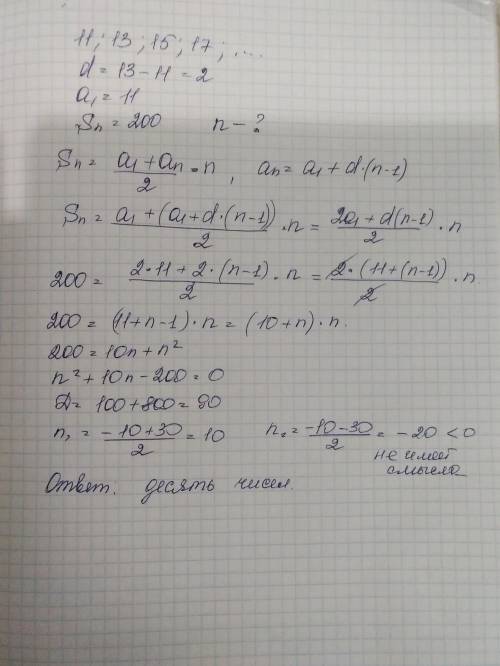 11; 13; 15; 17; ....
d = 13 - 11 = 2
a₁ = 11
Sn = 200 n - ?
Sn = (a₁ + an)/2 · n, an = a₁ + d·(n-1)
Sn = (a₁ + (a₁ + d·(n-1)))/2 · n = (2a₁ + d(n-1))/2 · n
200 = (2·11 + 2·(n-1))/2 · n = (2·(11 + (n-1)))/2 · n
200 = (11 + n - 1)·n = (10 + n)·n.
200 = 10n + n²
n² + 10n - 200 = 0
D = 100 + 800 = 90
n₁ = (-10 + 30)/2 = 10 n₂ = (-10 - 30)/2 = -20 < 0
не имеет
смысла
Ответ. десять чисел.